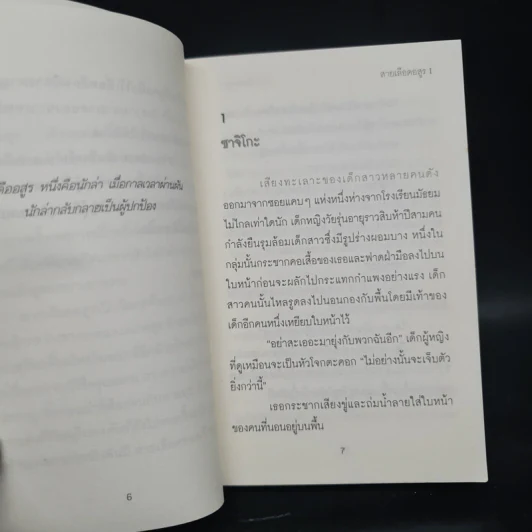 คืออสูร หนึ่งคือนักล่า เมื่อกาลเวลาผ่านผัน
นักล่ากลับกลายเป็นผู้ปกป้อง
6
สายเลือดอสูร 1
1
ซาจิโกะ
เสียงทะเลาะของเด็กสาวหลายคนดัง
ออกมาจากซอยแคบๆ แห่งหนึ่งห่างจากโรงเรียนมัธยม
ไม่ไกลเท่าใดนัก เด็กหญิงวัยรุ่นอายุราวสิบห้าปีสามคน
กำลังยืนรุมล้อมเด็กสาวซึ่งมีรูปร่างผอมบาง หนึ่งใน
กลุ่มนั้นกระชากคอเสื้อของเธอและฟาดฝ่ามือลงไปบน
ใบหน้าก่อนจะผลักไปกระแทกกำแพงอย่างแรง เด็ก
สาวคนนั้นไหลรูดลงไปนอนกองกับพื้นโดยมีเท้าของ
เด็กอีกคนหนึ่งเหยียบใบหน้าไว้
"อย่าสะเออะมายุ่งกับพวกฉันอีก" เด็กผู้หญิง
ที่ดูเหมือนจะเป็นหัวโจกตะคอก "ไม่อย่างนั้นจะเจ็บตัว
ยิ่งกว่านี้"
เธอกระชากเสียงขู่และถ่มน้ำลายใส่ใบหน้า
ของคนที่นอนอยู่บนพื้น
7